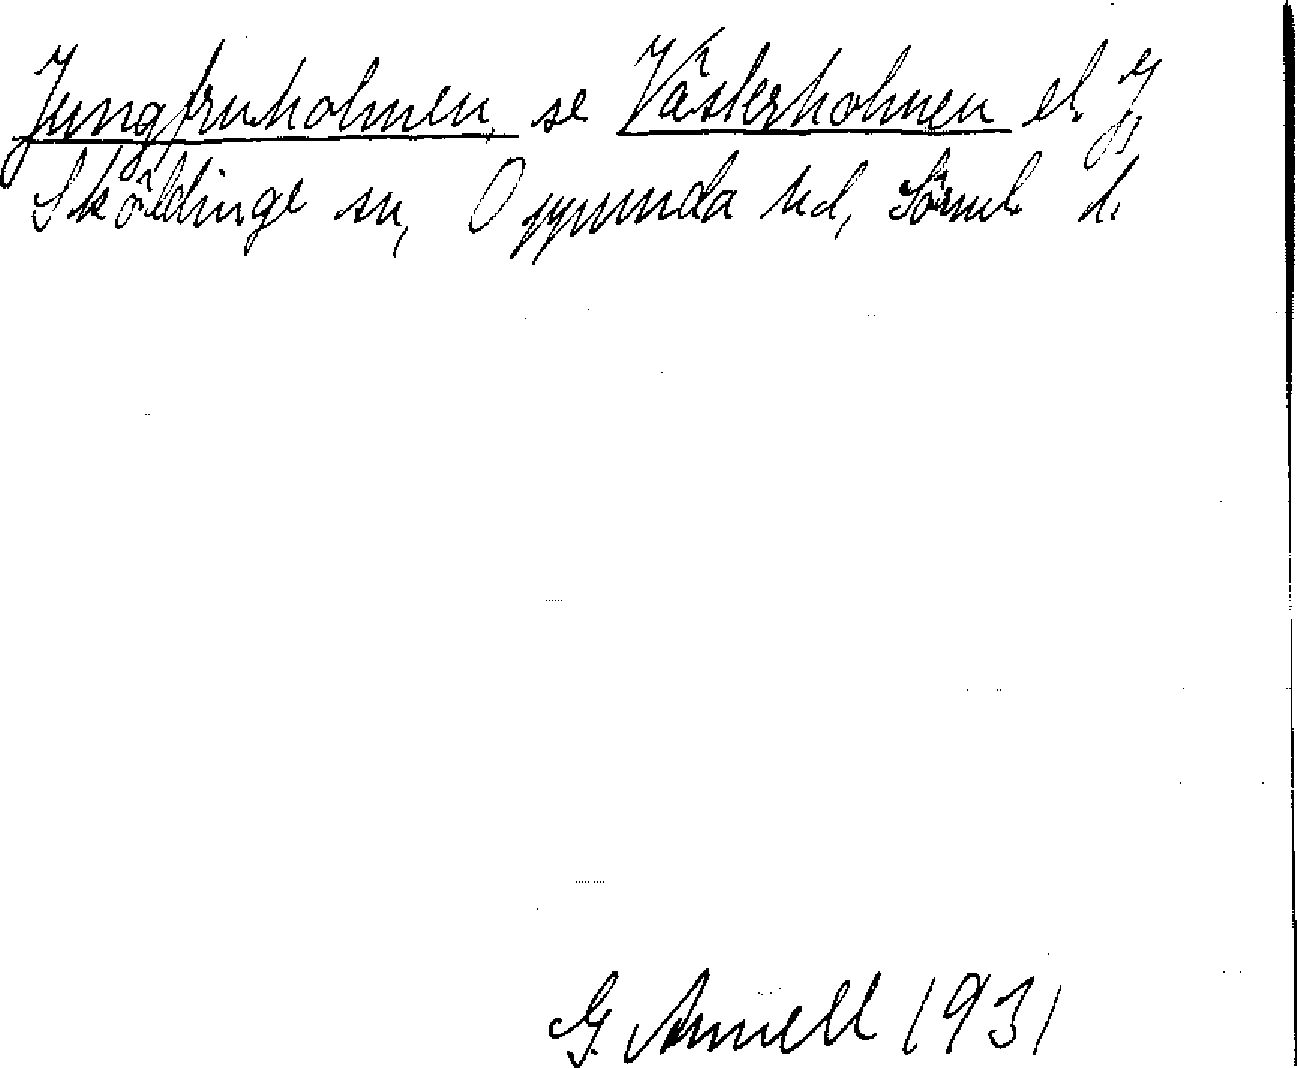 Jungfruholmen, se Västerholmen el. J
Sköldinge sn, Oppunda hd, Sörml. l.
G. Annell 1931